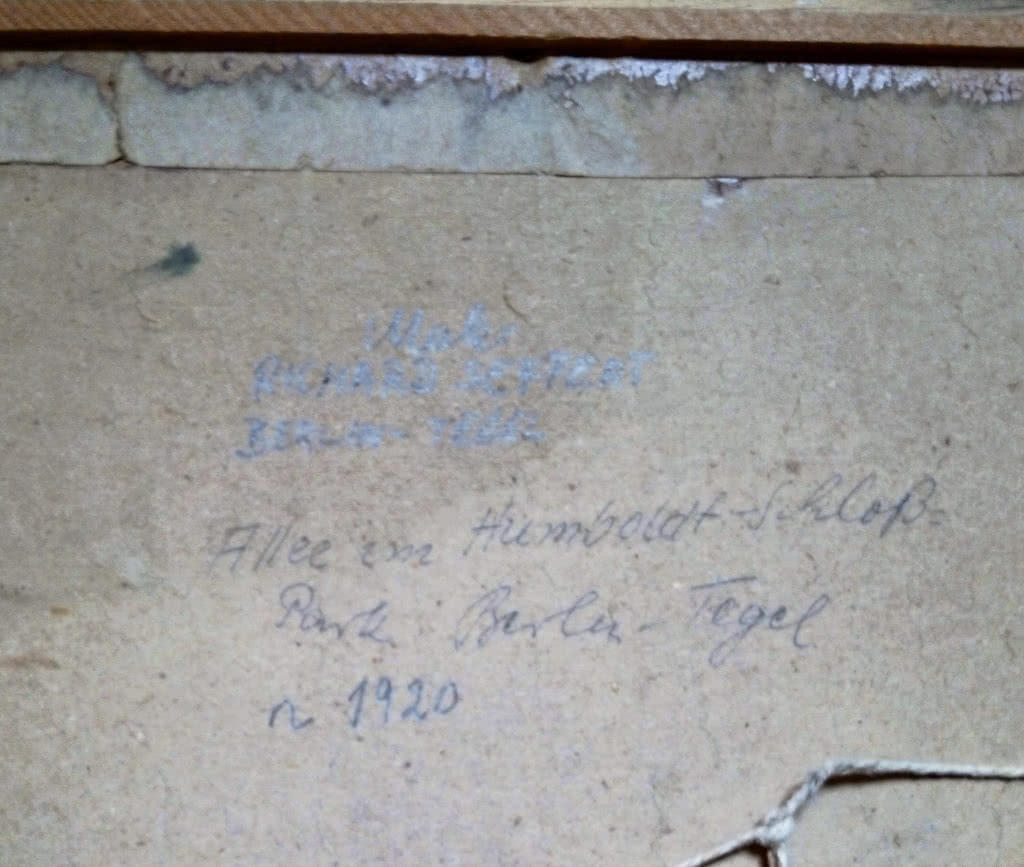 Maler
RICHARD SEFFERT
BERLIN-TEGEL
Allee im Humboldt-Schloß-
Park Berlin-Tegel
1920